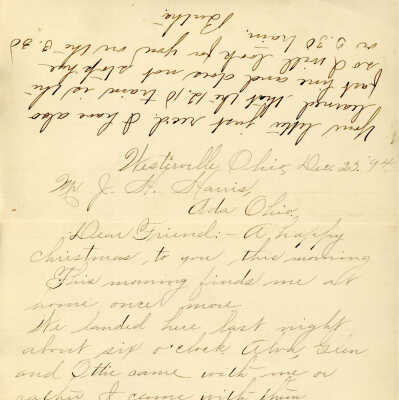 Your letter just rec'd. I have also
learned that the 12.10 train is the
fast line and does not stop here
so I will look for you on the 3.30
or 5.30 train.
Westerville, Ohio, Dec. 25, '94.
Mr. J. H. Harris,
Ada Ohio,
Dear Friend:- A happy
christmas to you this morning
This morning finds me at
home once more
We landed here last night
about six o'clock
and Ottie came with me or
rather I came with them